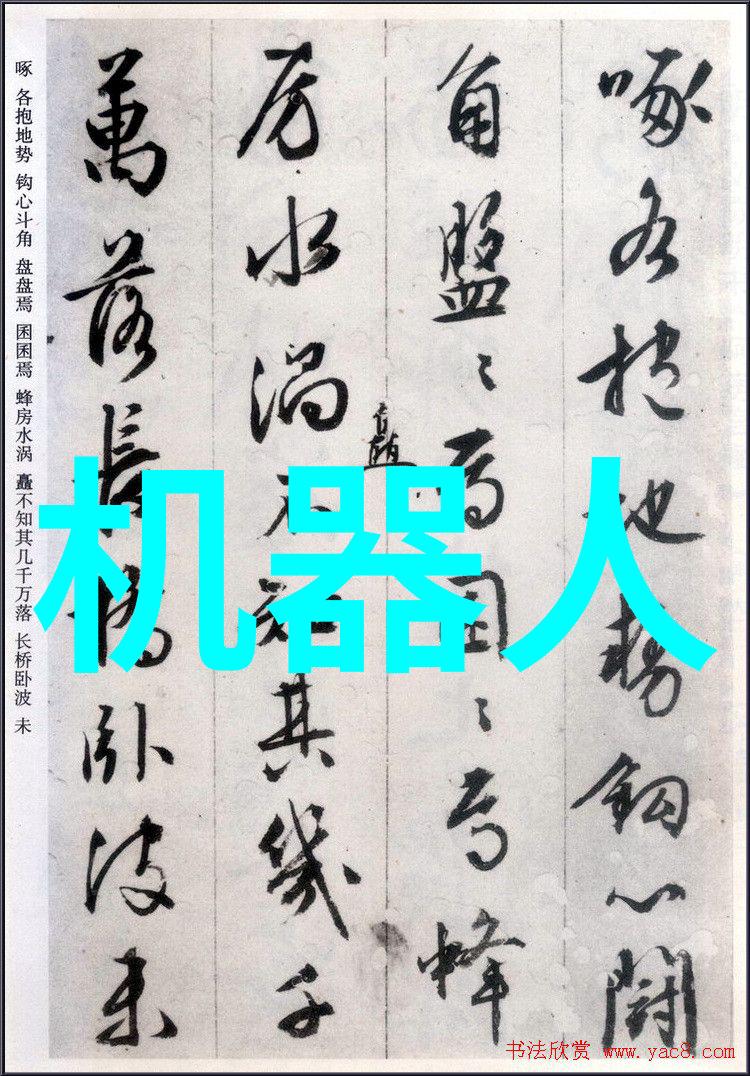 啄各抱地势钩心鬭
角盤〻焉囷〻焉蜂
房水渦矗不知其幾千
萬落長橋卧波未
啄 各抱地势 钩心斗角 盘盘焉 囷囷焉 蜂房水涡 矗不知其几千万落 长桥卧波 未
机器人
书法欣赏 www.yac8.com